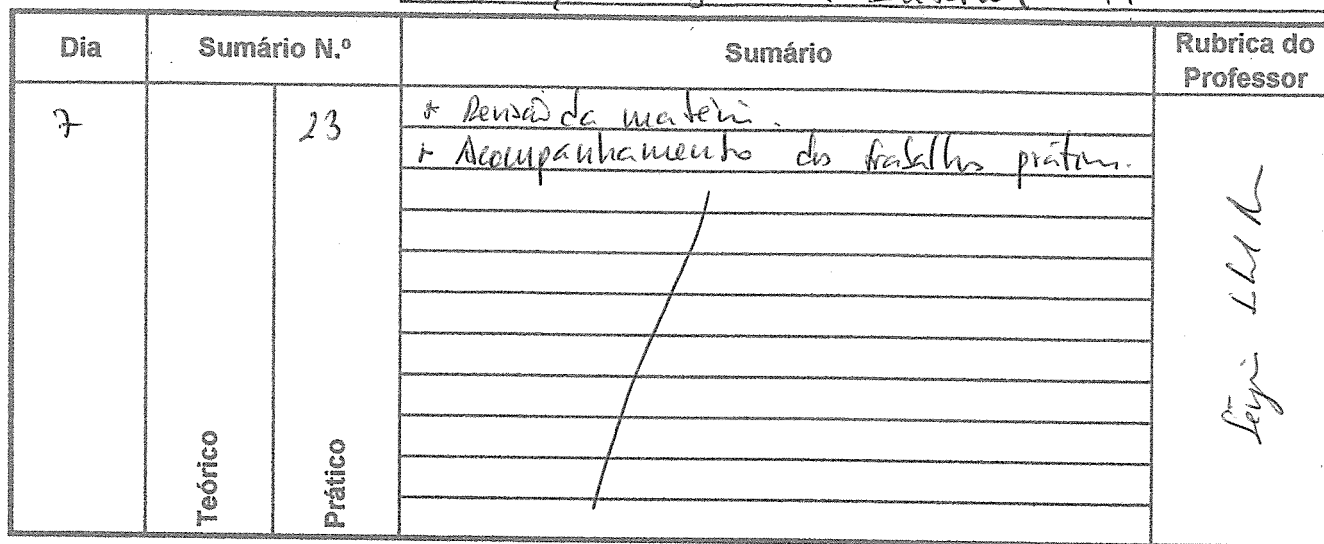 Dia Sumário N.º Sumário Rubrica do Professor
7 23 * Revisão da matéria.
* Acompanhamento do trabalho prático.
Teórico Prático
Sérgio